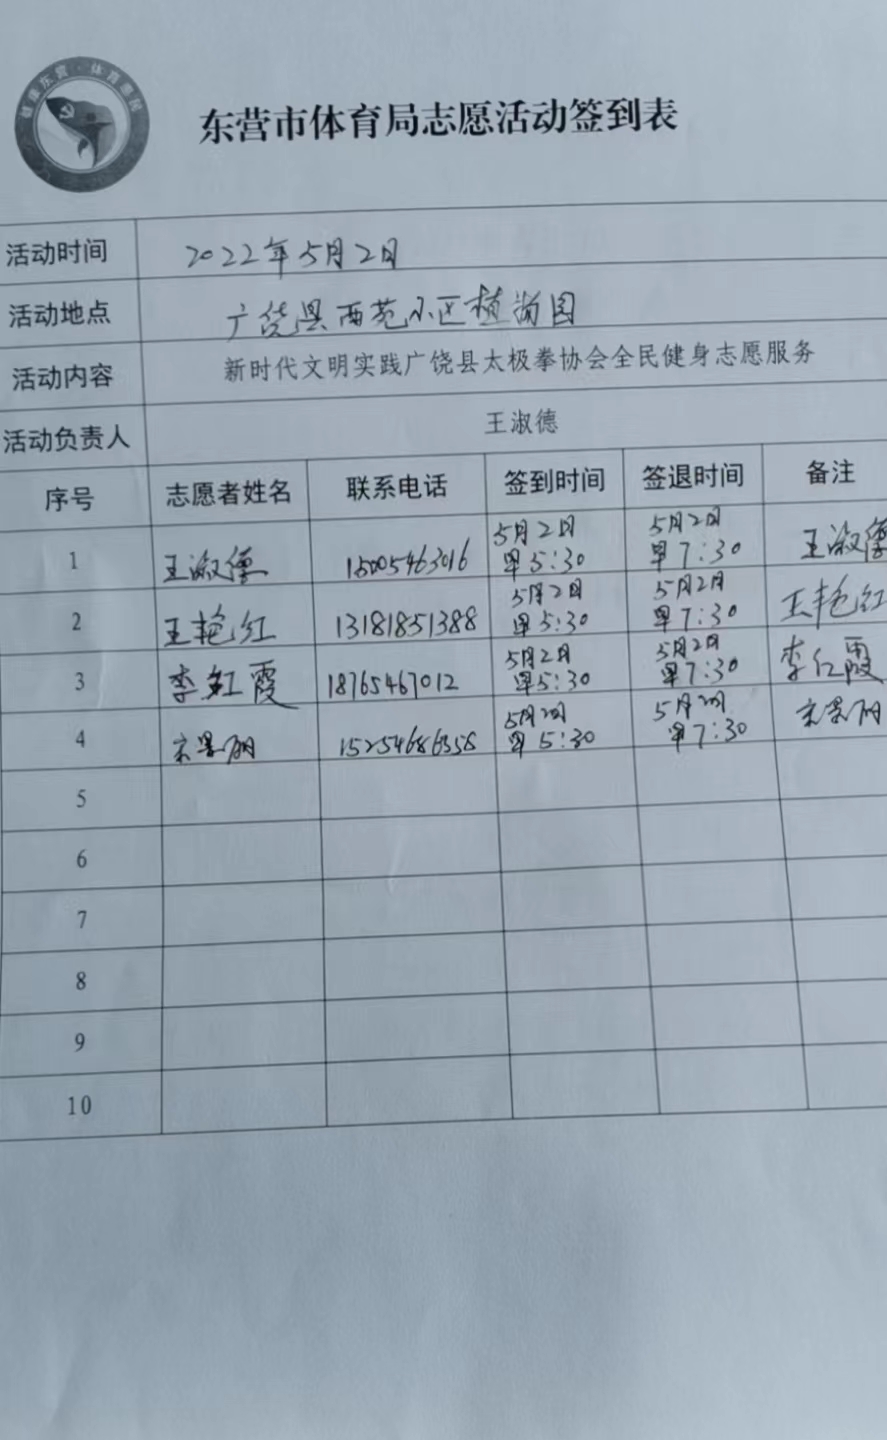 健康东营·体育惠民
东营市体育局志愿活动签到表
活动时间 2022年5月2日
活动地点 广饶县西苑小区植物园
活动内容 新时代文明实践广饶县太极拳协会全民健身志愿服务
活动负责人 王淑德
序号 志愿者姓名 联系电话 签到时间 签退时间 备注
1 王淑德 15005463016 5月2日 早5:30 5月2日 早7:30 王淑德
2 王艳红 13181851388 5月2日 早5:30 5月2日 早7:30 王艳红
3 李红霞 18765467012 5月2日 早5:30 5月2日 早7:30 李红霞
4 15254686358 5月2日 早5:30 5月2日 早7:30
5
6
7
8
9
10